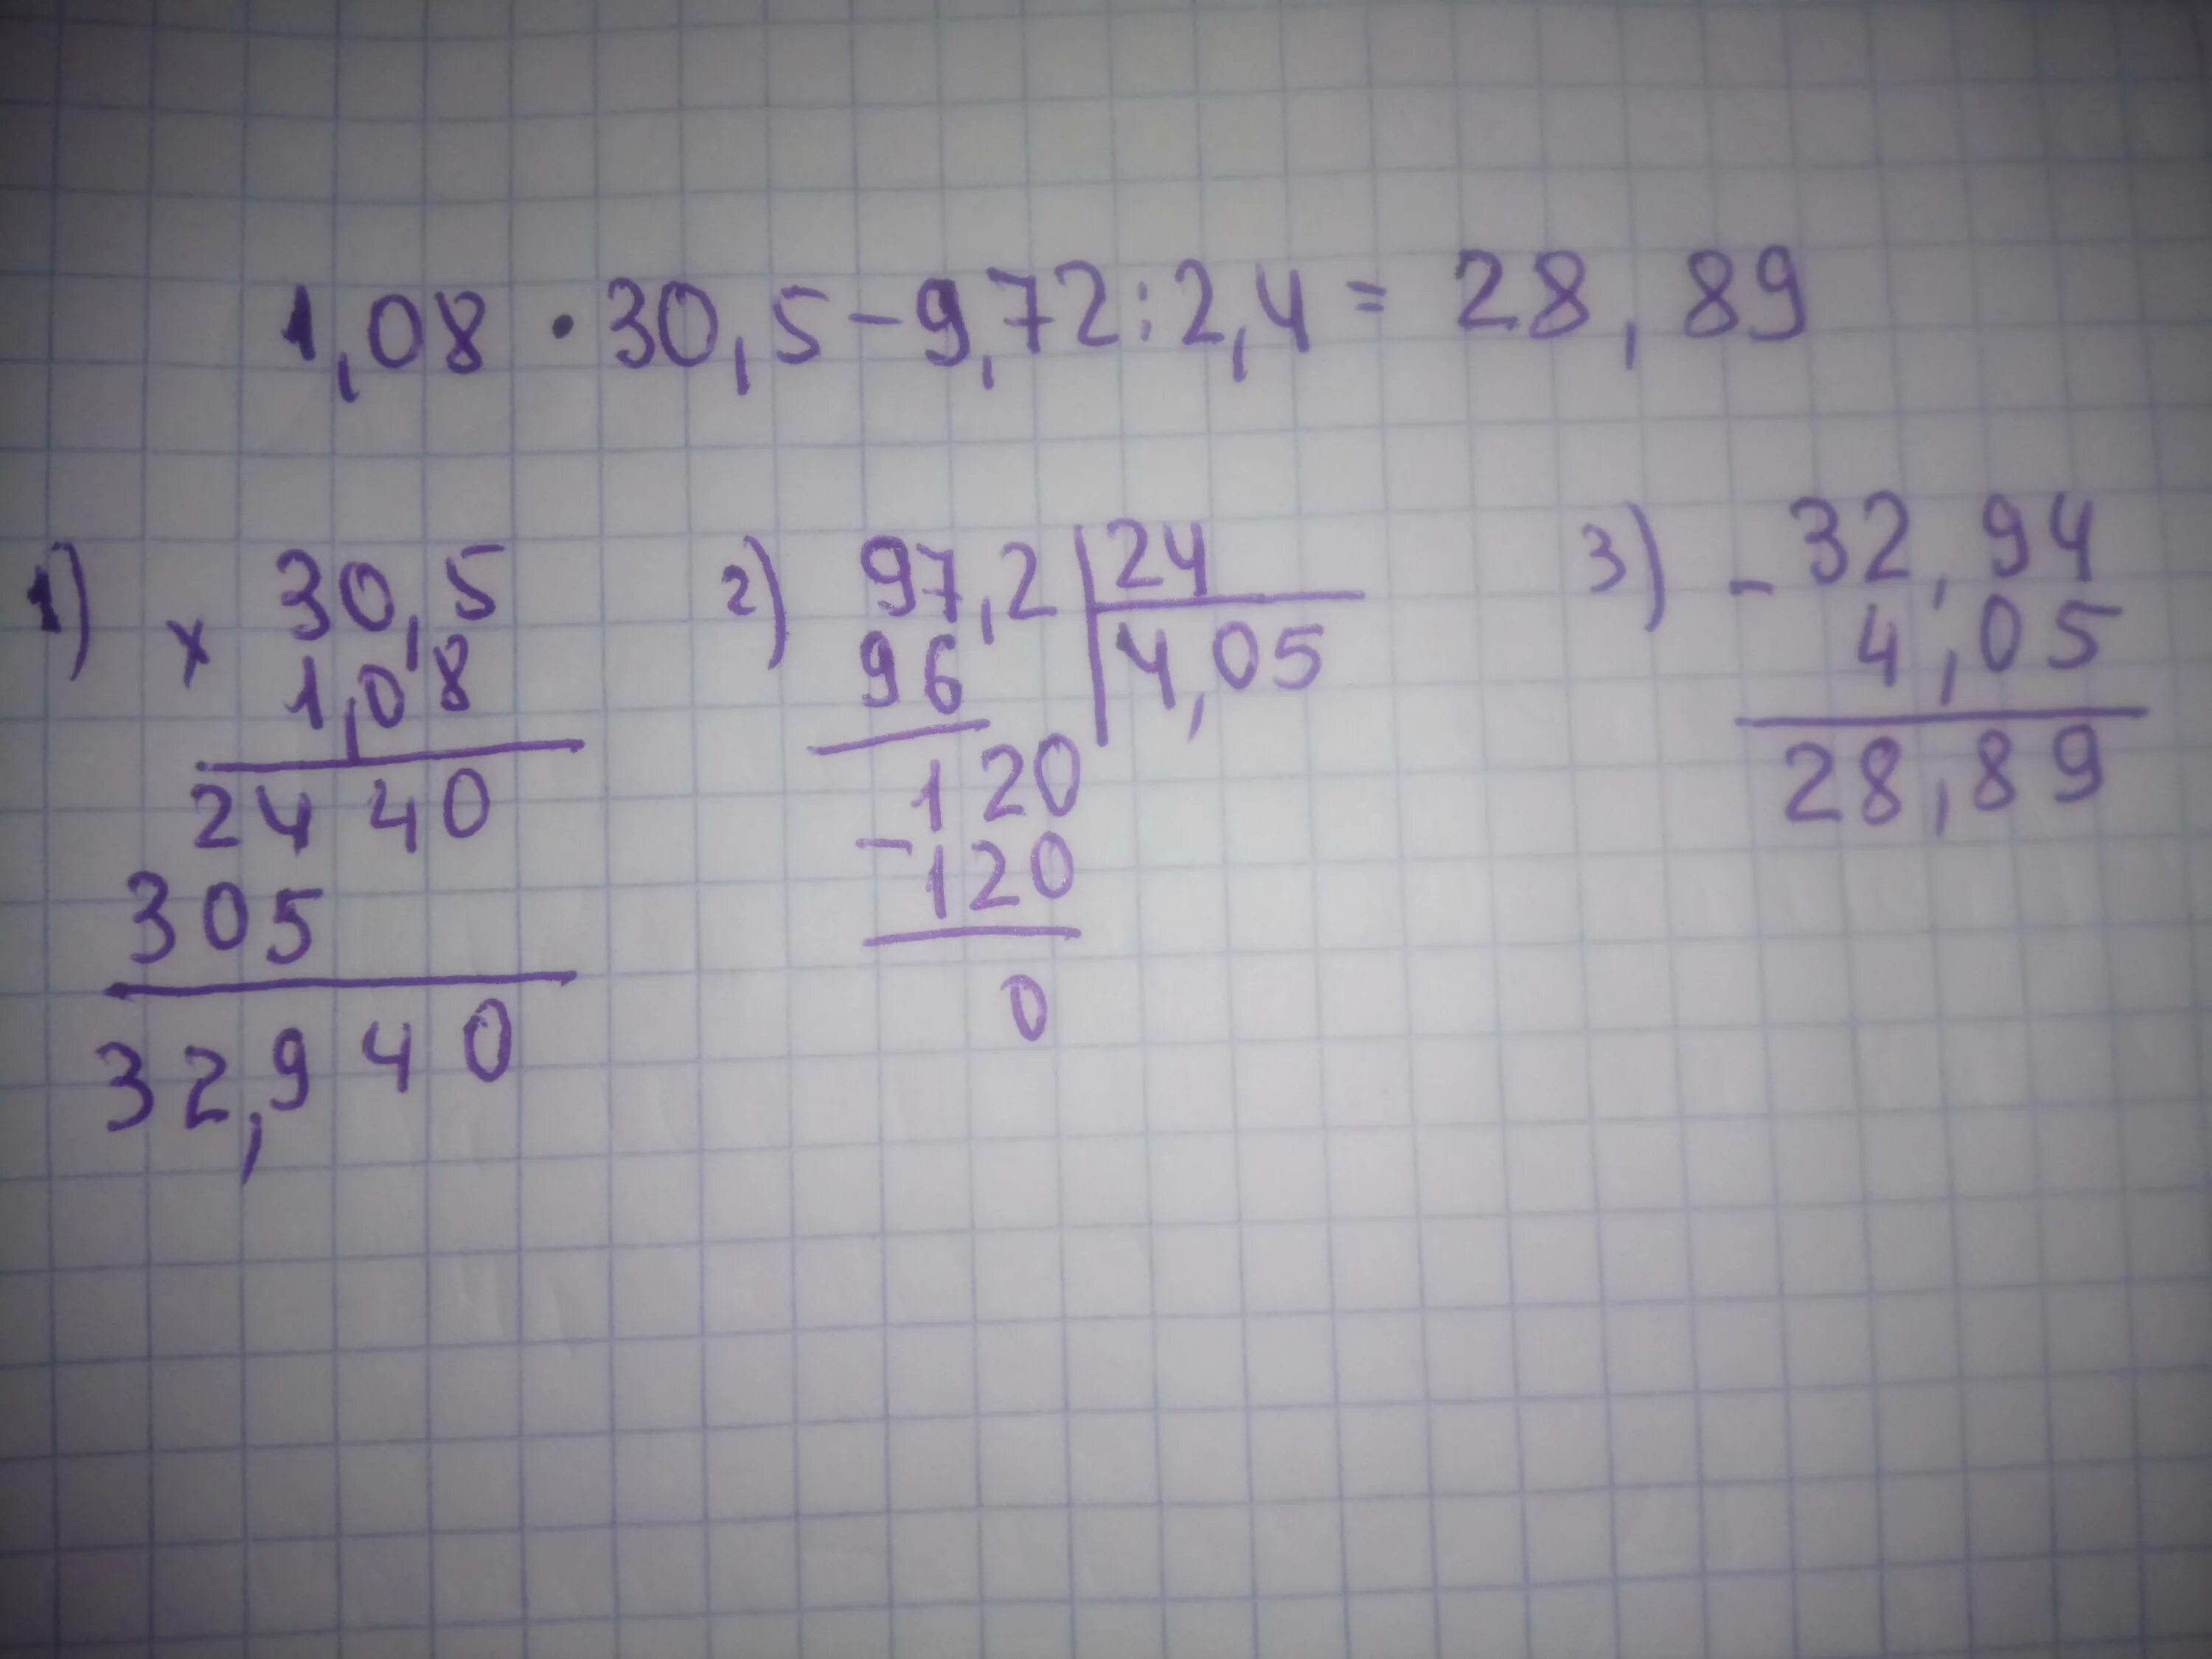 1,08 · 30,5 - 9,72 : 2,4 = 28,89
1)
× 30,5
1,08
2440
305
32,940
2)
97,2 | 24
96 | 4,05
120
- 120
0
3)
- 32,94
4,05
28,89